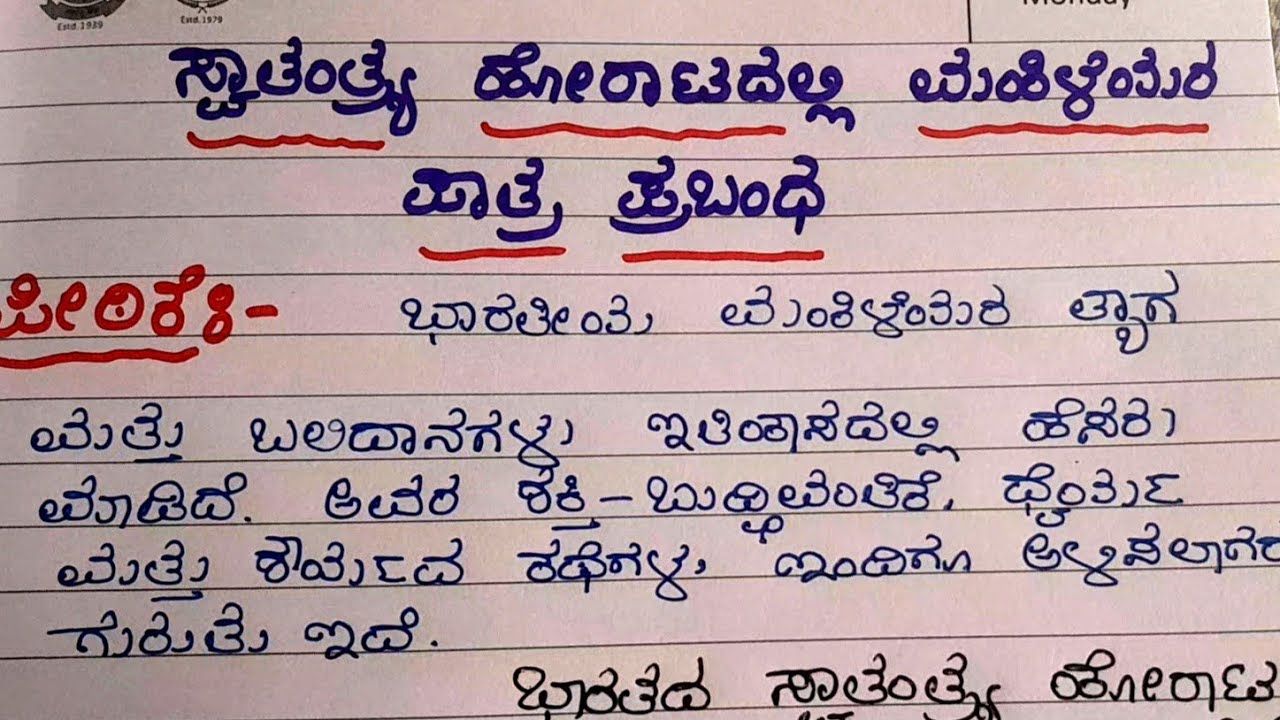 Estd.1939
Estd.1979
Monday
ಸ್ವಾತಂತ್ರ್ಯ ಹೋರಾಟದಲ್ಲಿ ಮಹಿಳೆಯರ
ಪಾತ್ರ ಪ್ರಬಂಧ
ಪೀಠಿಕೆ:- ಭಾರತೀಯ ಮಹಿಳೆಯರ ತ್ಯಾಗ
ಮತ್ತು ಬಲಿದಾನಗಳು ಇತಿಹಾಸದಲ್ಲಿ ಹೆಸರು
ಮಾಡಿದೆ. ಅವರ ಶಕ್ತಿ-ಬುದ್ಧಿವಂತಿಕೆ, ಧೈರ್ಯ
ಮತ್ತು ಶೌರ್ಯದ ಕಥೆಗಳು ಇಂದಿಗೂ ಅಳಿಸಲಾಗದ
ಗುರುತು ಇದೆ.
ಭಾರತದ ಸ್ವಾತಂತ್ರ್ಯ ಹೋರಾಟ